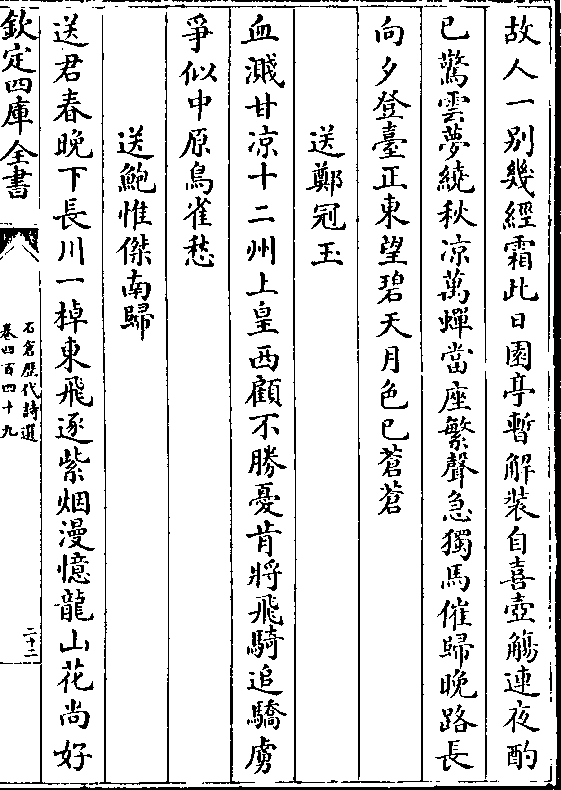 故人一别幾經霜此日園亭暫解装自喜壺觴連夜酌
已驚雲夢繞秋凉萬蟬當座繁聲急獨馬催歸晚路長
向夕登臺正東望碧天月色已蒼蒼
送鄭冠玉
血濺甘凉十二州上皇西顧不勝憂肯將飛騎追驕虜
爭似中原鳥雀愁
送鮑惟傑南歸
送君春晚下長川一棹東飛逐紫烟漫憶龍山花尚好
欽定四庫全書
石倉歷代詩選
卷四百四十九
二十二